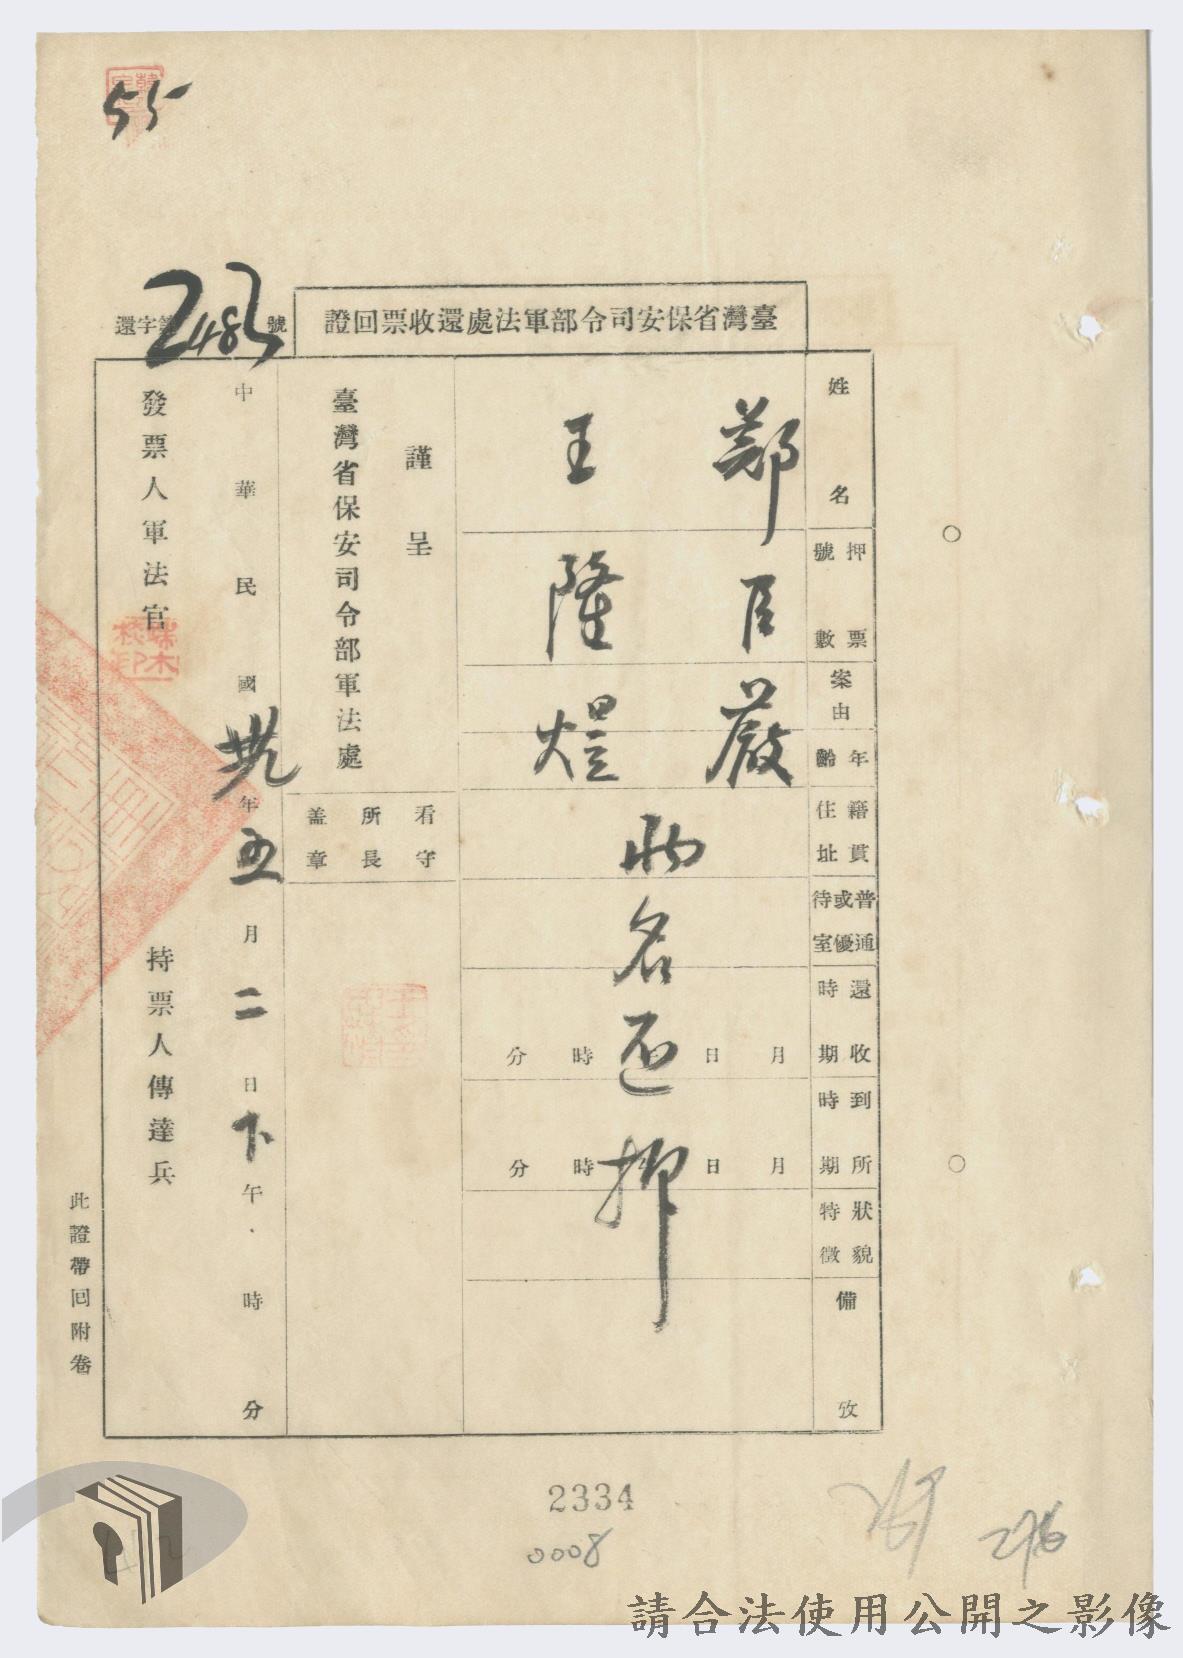 55
臺灣省保安司令部軍法處還收票回證
還字第2483號
姓名
押票號數
案由
年齡
籍貫住址
普通或優待室
還收時期
到所時期
狀貌特徵
備攷
鄭臣嚴
王隆熤
兩名還押
月日時分
月日時分
謹呈
臺灣省保安司令部軍法處
看守所長盖章
中華民國卅九年五月二日下午時分
發票人軍法官
持票人傳達兵
此證帶回附卷
2334
0008
276
請合法使用公開之影像